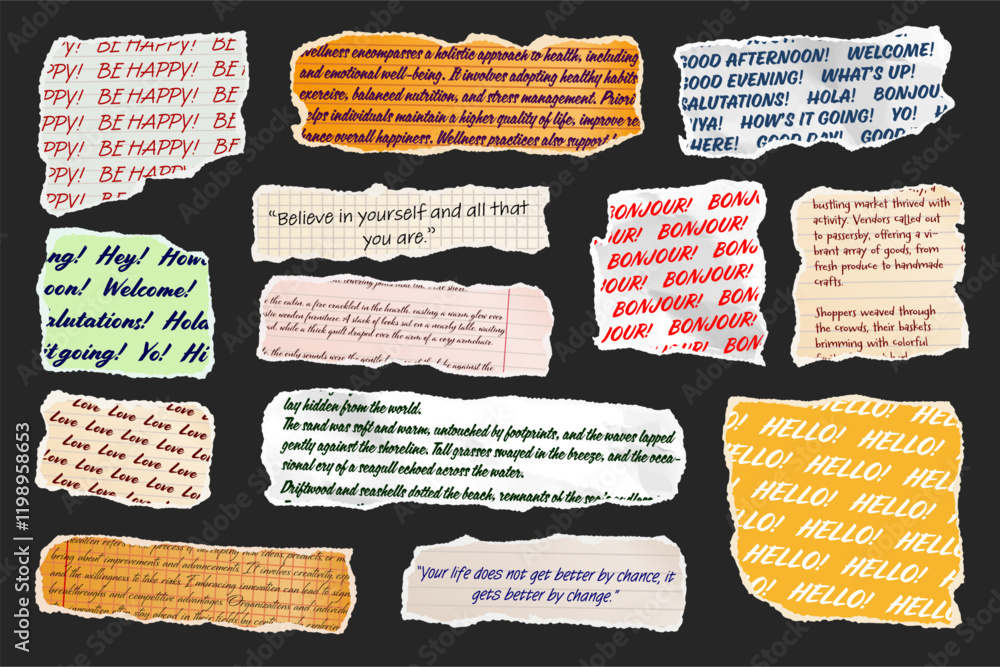 BE HAPPY! BE
PPY! BE HAPPY! BE
PPY! BE HAPPY! BE
PPY! BE HAPPY! BE
PPY! BE HAPPY! BE
PPY! BE HAPPY!
PPY! BE HAPPY
PPY! BE
wellness encompasses a holistic approach to health, including
and emotional well-being. It involves adopting healthy habits
exercise, balanced nutrition, and stress management. Priori
elps individuals maintain a higher quality of life, improve re
ance overall happiness. Wellness practices also support
GOOD AFTERNOON! WELCOME!
GOOD EVENING! WHAT'S UP!
SALUTATIONS! HOLA! BONJOU
IYA! HOW'S IT GOING! YO! H
HERE! GOOD DAY! GOOD
“Believe in yourself and all that
you are.”
BONJOUR! BONJ
OUR! BONJOUR!
BONJOUR! BONJ
JOUR! BONJOUR!
BONJOUR! BONJ
JOUR! BONJOUR!
BONJ
bustling market thrived with
activity. Vendors called out
to passersby, offering a vi-
brant array of goods, from
fresh produce to handmade
crafts.
Shoppers weaved through
the crowds, their baskets
brimming with colorful
ng! Hey! How
oon! Welcome!
alutations! Hola
it going! Yo! Hi
e the calm, a fire crackled in the hearth, casting a warm glow over
stic wooden furniture. A stack of books sat on a nearby table, waiting
ad, while a thick quilt draped over the arm of a cozy armchair.
the only sounds were the gentle against the
Love Love Love
Love Love Love Love Love
Love Love Love Love
Love Love Love Love Love
Love Love Love Love
Love Love Love
lay hidden from the world.
The sand was soft and warm, untouched by footprints, and the waves lapped
gently against the shoreline. Tall grasses swayed in the breeze, and the occa-
sional cry of a seagull echoed across the water.
Driftwood and seashells dotted the beach, remnants of the sea's endless
HELLO! HEL
HELLO! HELLO!
HELLO! HELL
LLO! HELLO!
HELLO! HELLO
LLO! HELLO!
HELLO! HELL
HELLO! HELLO
HELLO! HELL
ovation refers process of developing new ideas, products, or m
bring about improvements and advancements. It involves creativity, exp
and the willingness to take risks. Embracing innovation can lead to sign
breakthroughs and competitive advantages. Organizations and individu
innovation often stay ahead in their fields by
“Your life does not get better by chance, it
gets better by change.”
Adobe Stock | #1198958653